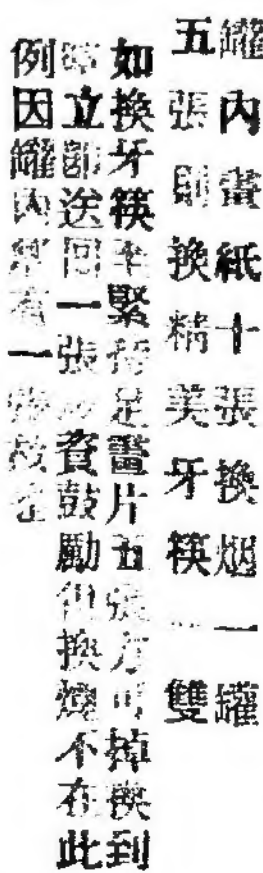 罐內畫紙十張換烟一罐
五張則換精美牙筷一雙
如換牙筷緊足畫片五張方可掉換到
立即送回一張資鼓勵但換烟不在此
例因罐內一